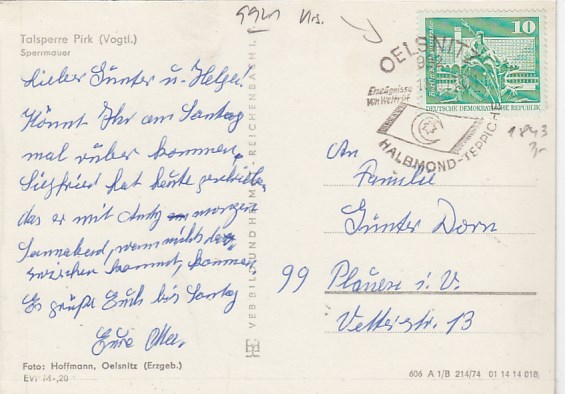 Talsperre Pirk (Vogtl.)
Sperrmauer
Lieber Günter u. Helga!
Könnt Ihr am Sontag
mal rüber kommen,
Siegfried hat heute geschrieben
das er mit Andy morgen
Sonnabend, wenn nichts da
zwischen kommt, kommen.
Es grüßt Euch bis Sontag
Eure
Foto: Hoffmann, Oelsnitz (Erzgeb.)
EVP M -,20
VEB BILD UND HEIMAT REICHENBACH I. V.
OELSNITZ
Erzeugnisse
von Weltruf
HALBMOND-TEPPICHE
10
DEUTSCHE DEMOKRATISCHE REPUBLIK
1843
An
Familie
Günter Dorn
99 Plauen i. V.
Vetterstr. 13
606 A 1/B 214/74 01 14 14 018